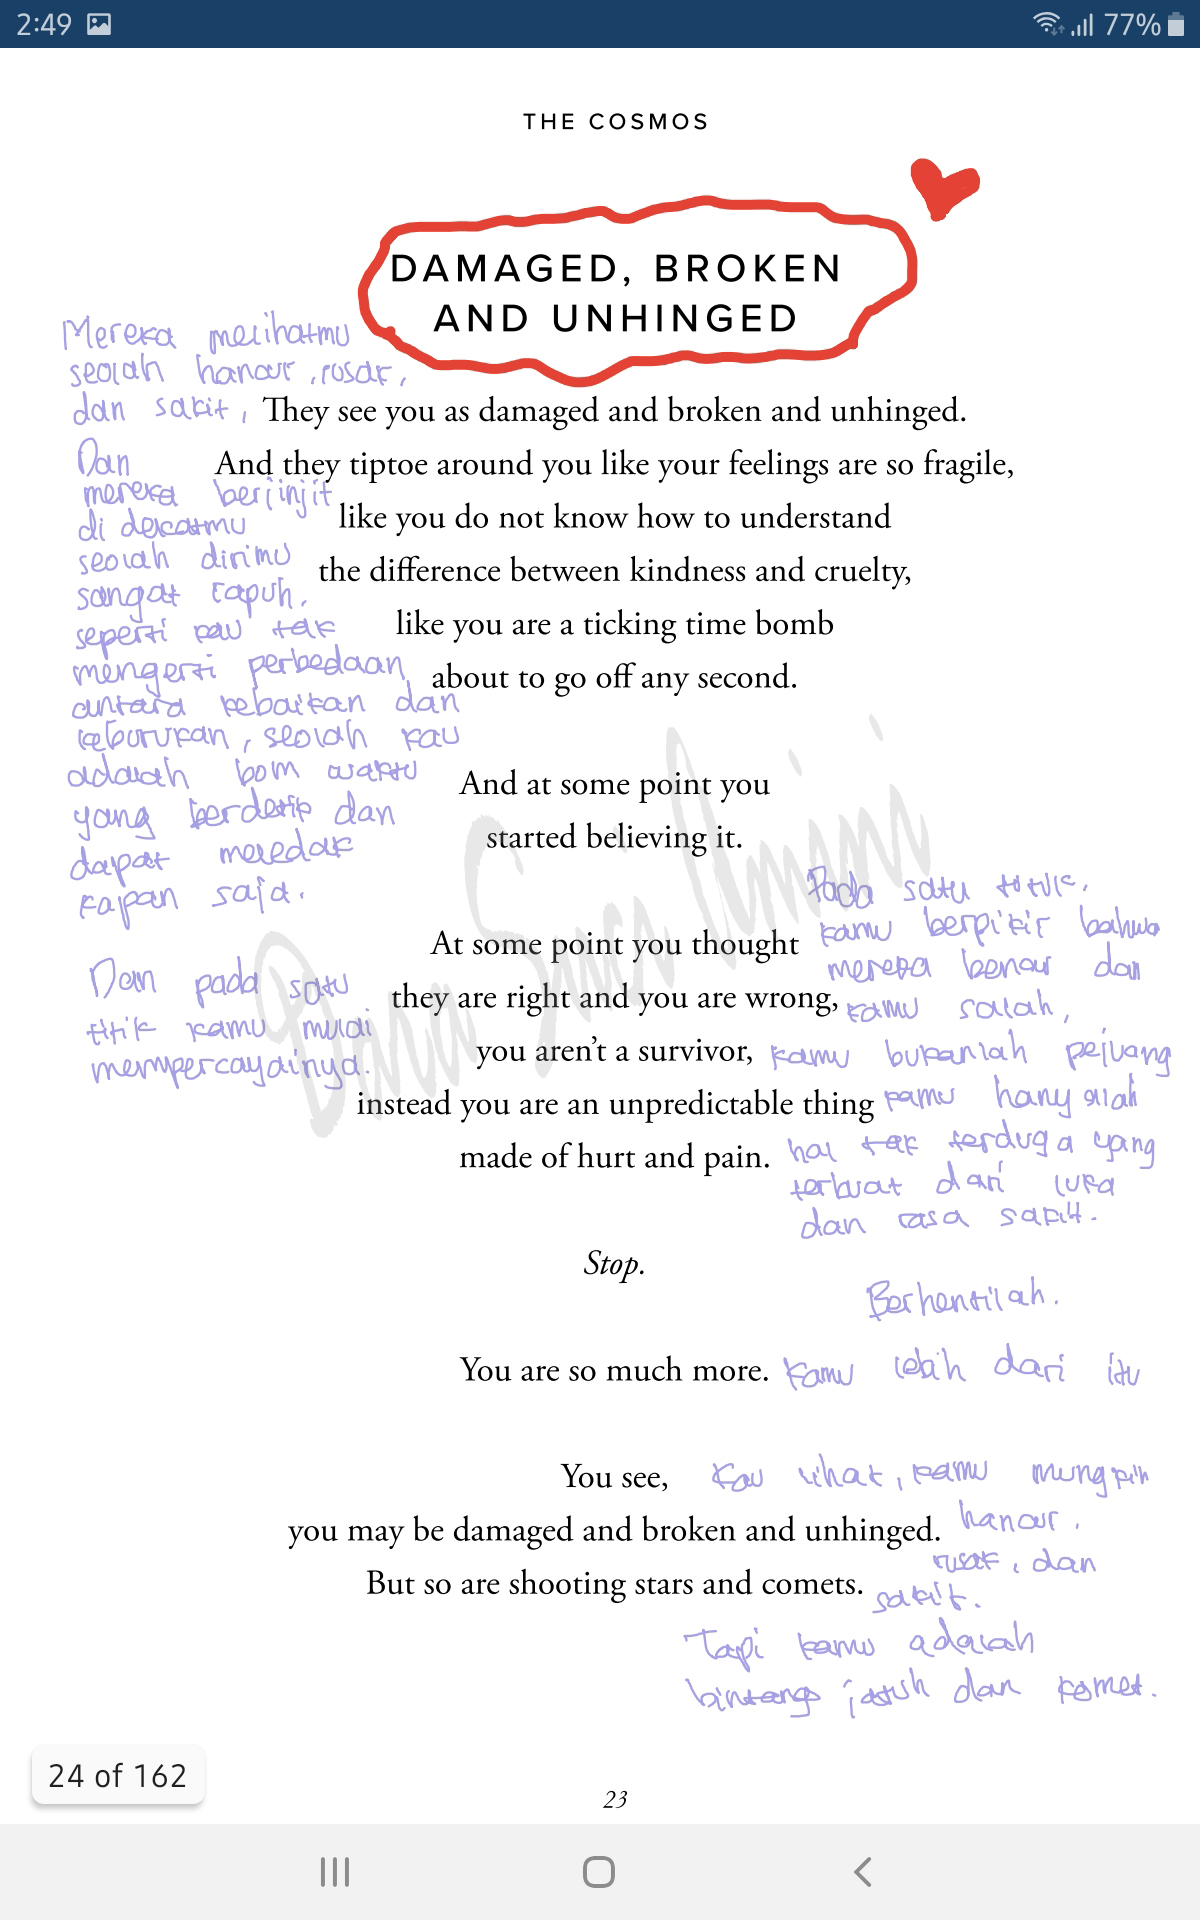 2:49
77%
THE COSMOS
DAMAGED, BROKEN
AND UNHINGED
Mereka melihatmu
seolah hancur, rusak,
dan sakit,
They see you as damaged and broken and unhinged.
Dan
And they tiptoe around you like your feelings are so fragile,
mereka berjinjit
di dekatmu
like you do not know how to understand
seolah dirimu
the difference between kindness and cruelty,
sangat rapuh,
seperti kau tak
like you are a ticking time bomb
mengerti perbedaan
about to go off any second.
antara kebaikan dan
keburukan, seolah kau
adalah bom waktu
And at some point you
yang berdetip dan
started believing it.
dapat meledak
kapan saja.
Pada satu titik,
At some point you thought
kamu berpikir bahwa
mereka benar dan
they are right and you are wrong,
kamu salah,
Dan pada satu
titik kamu mulai
mempercayainya.
you aren't a survivor,
kamu bukanlah pejuang
instead you are an unpredictable thing
kamu hanyalah
made of hurt and pain.
hal tak terduga yang
terbuat dari luka
dan rasa sakit.
Stop.
Berhentilah.
You are so much more.
Kamu lebih dari itu
You see,
Kau lihat, kamu mungkin
you may be damaged and broken and unhinged.
hancur,
rusak, dan
But so are shooting stars and comets.
sakit.
Tapi kamu adalah
bintang jatuh dan komet.
24 of 162
23